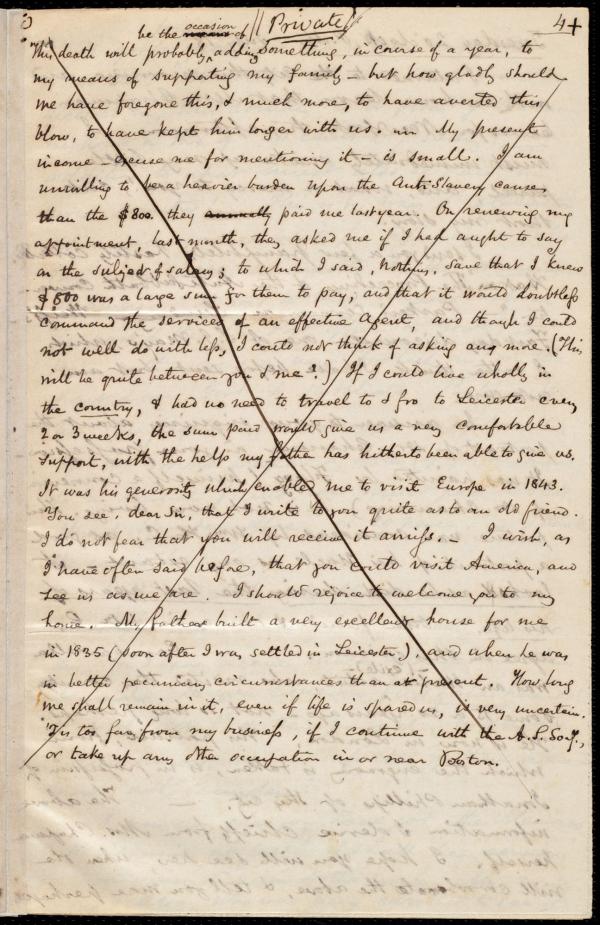 (Private) 4+
be the occasion of
This death will probably adding something, in course of a year, to
my means of supporting my family – but how gladly should
we have foregone this, & much more, to have averted this
blow, to have kept him longer with us. My present
income – excuse me for mentioning it – is small. I am
unwilling to be a heavier burden upon the Anti Slavery cause,
than the $800. they annually paid me last year. On renewing my
appointment, last month, they asked me if I had aught to say
on the subject of salary; to which I said, Nothing, save that I knew
$800 was a large sum for them to pay, and that it would doubtless
command the services of an effective Agent, and though I could
not well do with less, I could not think of asking any more. (This
will be quite between you & me?) If I could live wholly in
the country, & had no need to travel to & fro to Leicester every
2 or 3 weeks, the sum paid would give us a very comfortable
support, with the help my father has hitherto been able to give us.
It was his generosity which enabled me to visit Europe in 1843.
You see, dear Sir, that I write to you quite as to an old friend.
I do not fear that you will receive it amiss. – I wish, as
I have often said before, that you could visit America, and
see us as we are. I should rejoice to welcome you to my
home. My father built a very excellent house for me
in 1835 (soon after I was settled in Leicester), and when he was
in better pecuniary circumstances than at present. How long
we shall remain in it, even if life is spared us, is very uncertain.
'Tis too far from my business, if I continue with the A. S. Socy.,
or take up any other occupation in or near Boston.